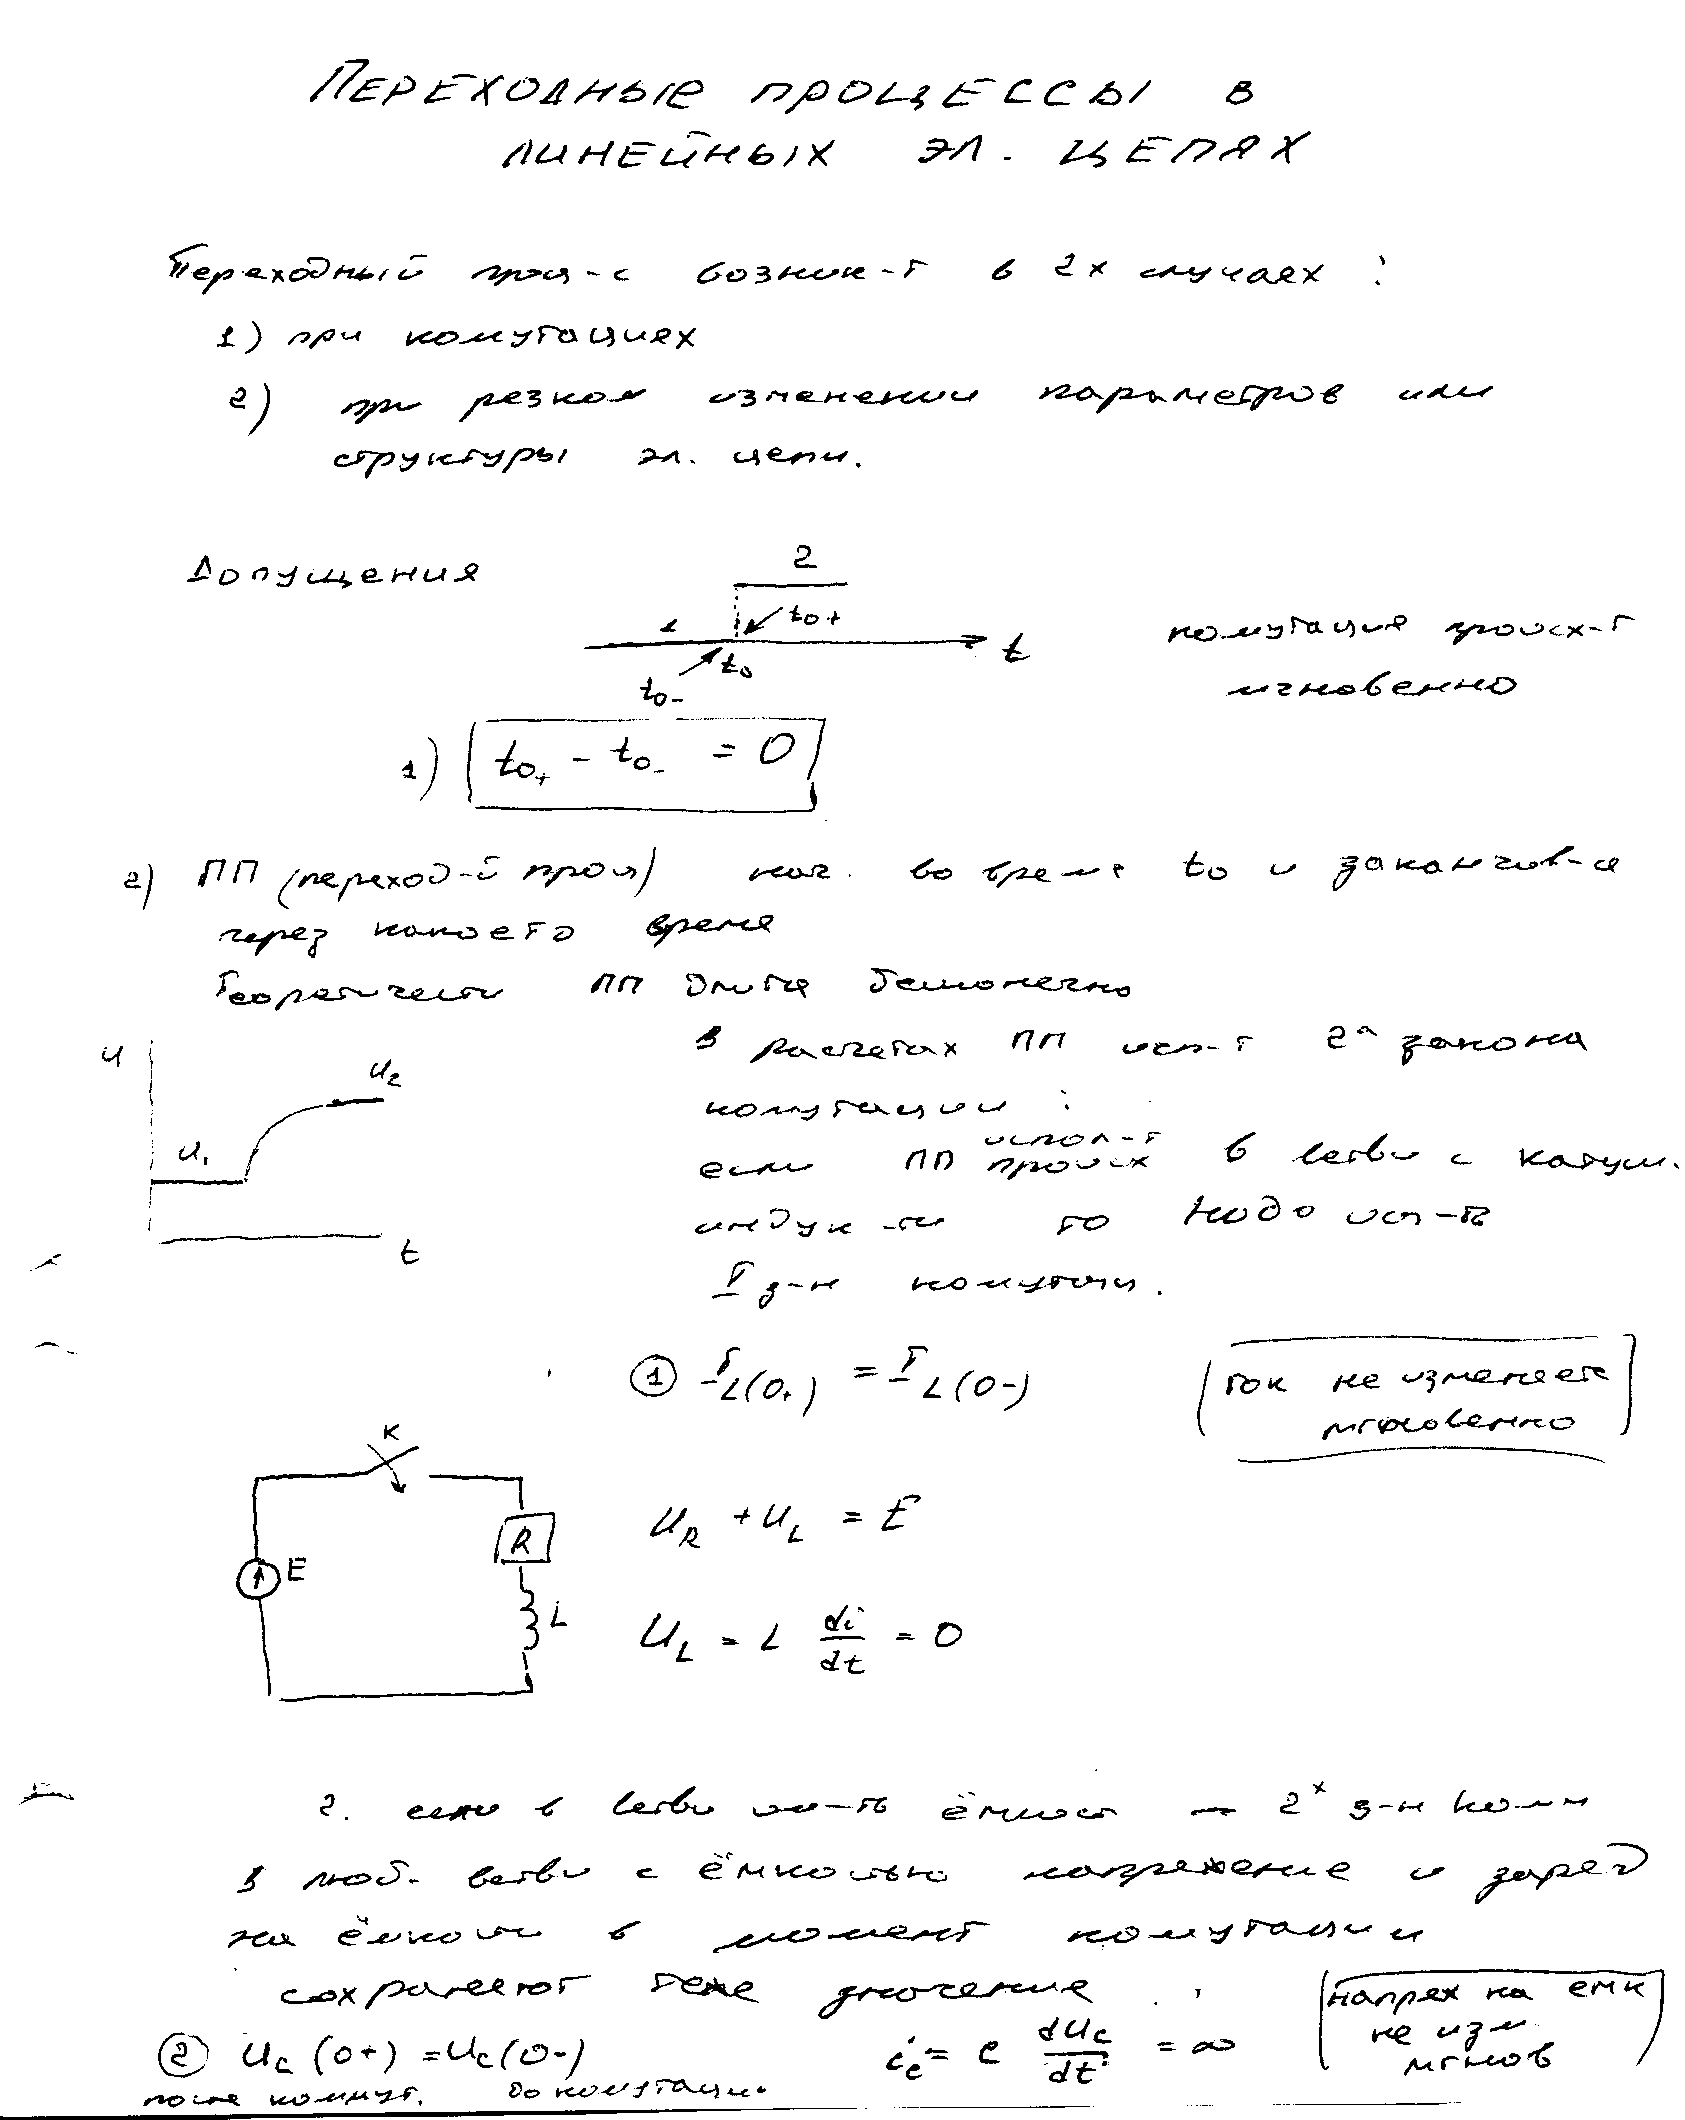 ПЕРЕХОДНЫЕ ПРОЦЕССЫ В
ЛИНЕЙНЫХ ЭЛ. ЦЕПЯХ
Переходный проц-с возник-т в 2х случаях :
1) при комутациях
2) при резком изменении параметров или
структуры эл. цепи.
Допущения
2
1
t0+
t
t0
t0-
комутация происх-т
мгновенно
1) t0+ - t0- = 0
2) ПП (переход-й проц) нач. во время t0 и заканчив-я
через какоето время
Теоретически ПП длится бесконечно
u
u1
u2
t
В расчетах ПП исп-т 2а закона
комутации :
испол-т
если ПП происх в ветви с катуш.
индук-ти то надо исп-ть
I з-н комутации.
① IL(0+) = IL(0-)
ток не изменяется
мгновенно
K
E
R
L
UR + UL = E
UL = L di/dt = 0
2. если в ветви ёмкост — 2х з-н комм
В люб. ветви с ёмкостью напряжение и заряд
на ёмкости в момент комутации
сохраняют теже значение
② Uc (0+) = Uc (0-)
после коммут. до комутации.
ic = c dUc/dt = ∞
напряж на емк
не изм
мгнов